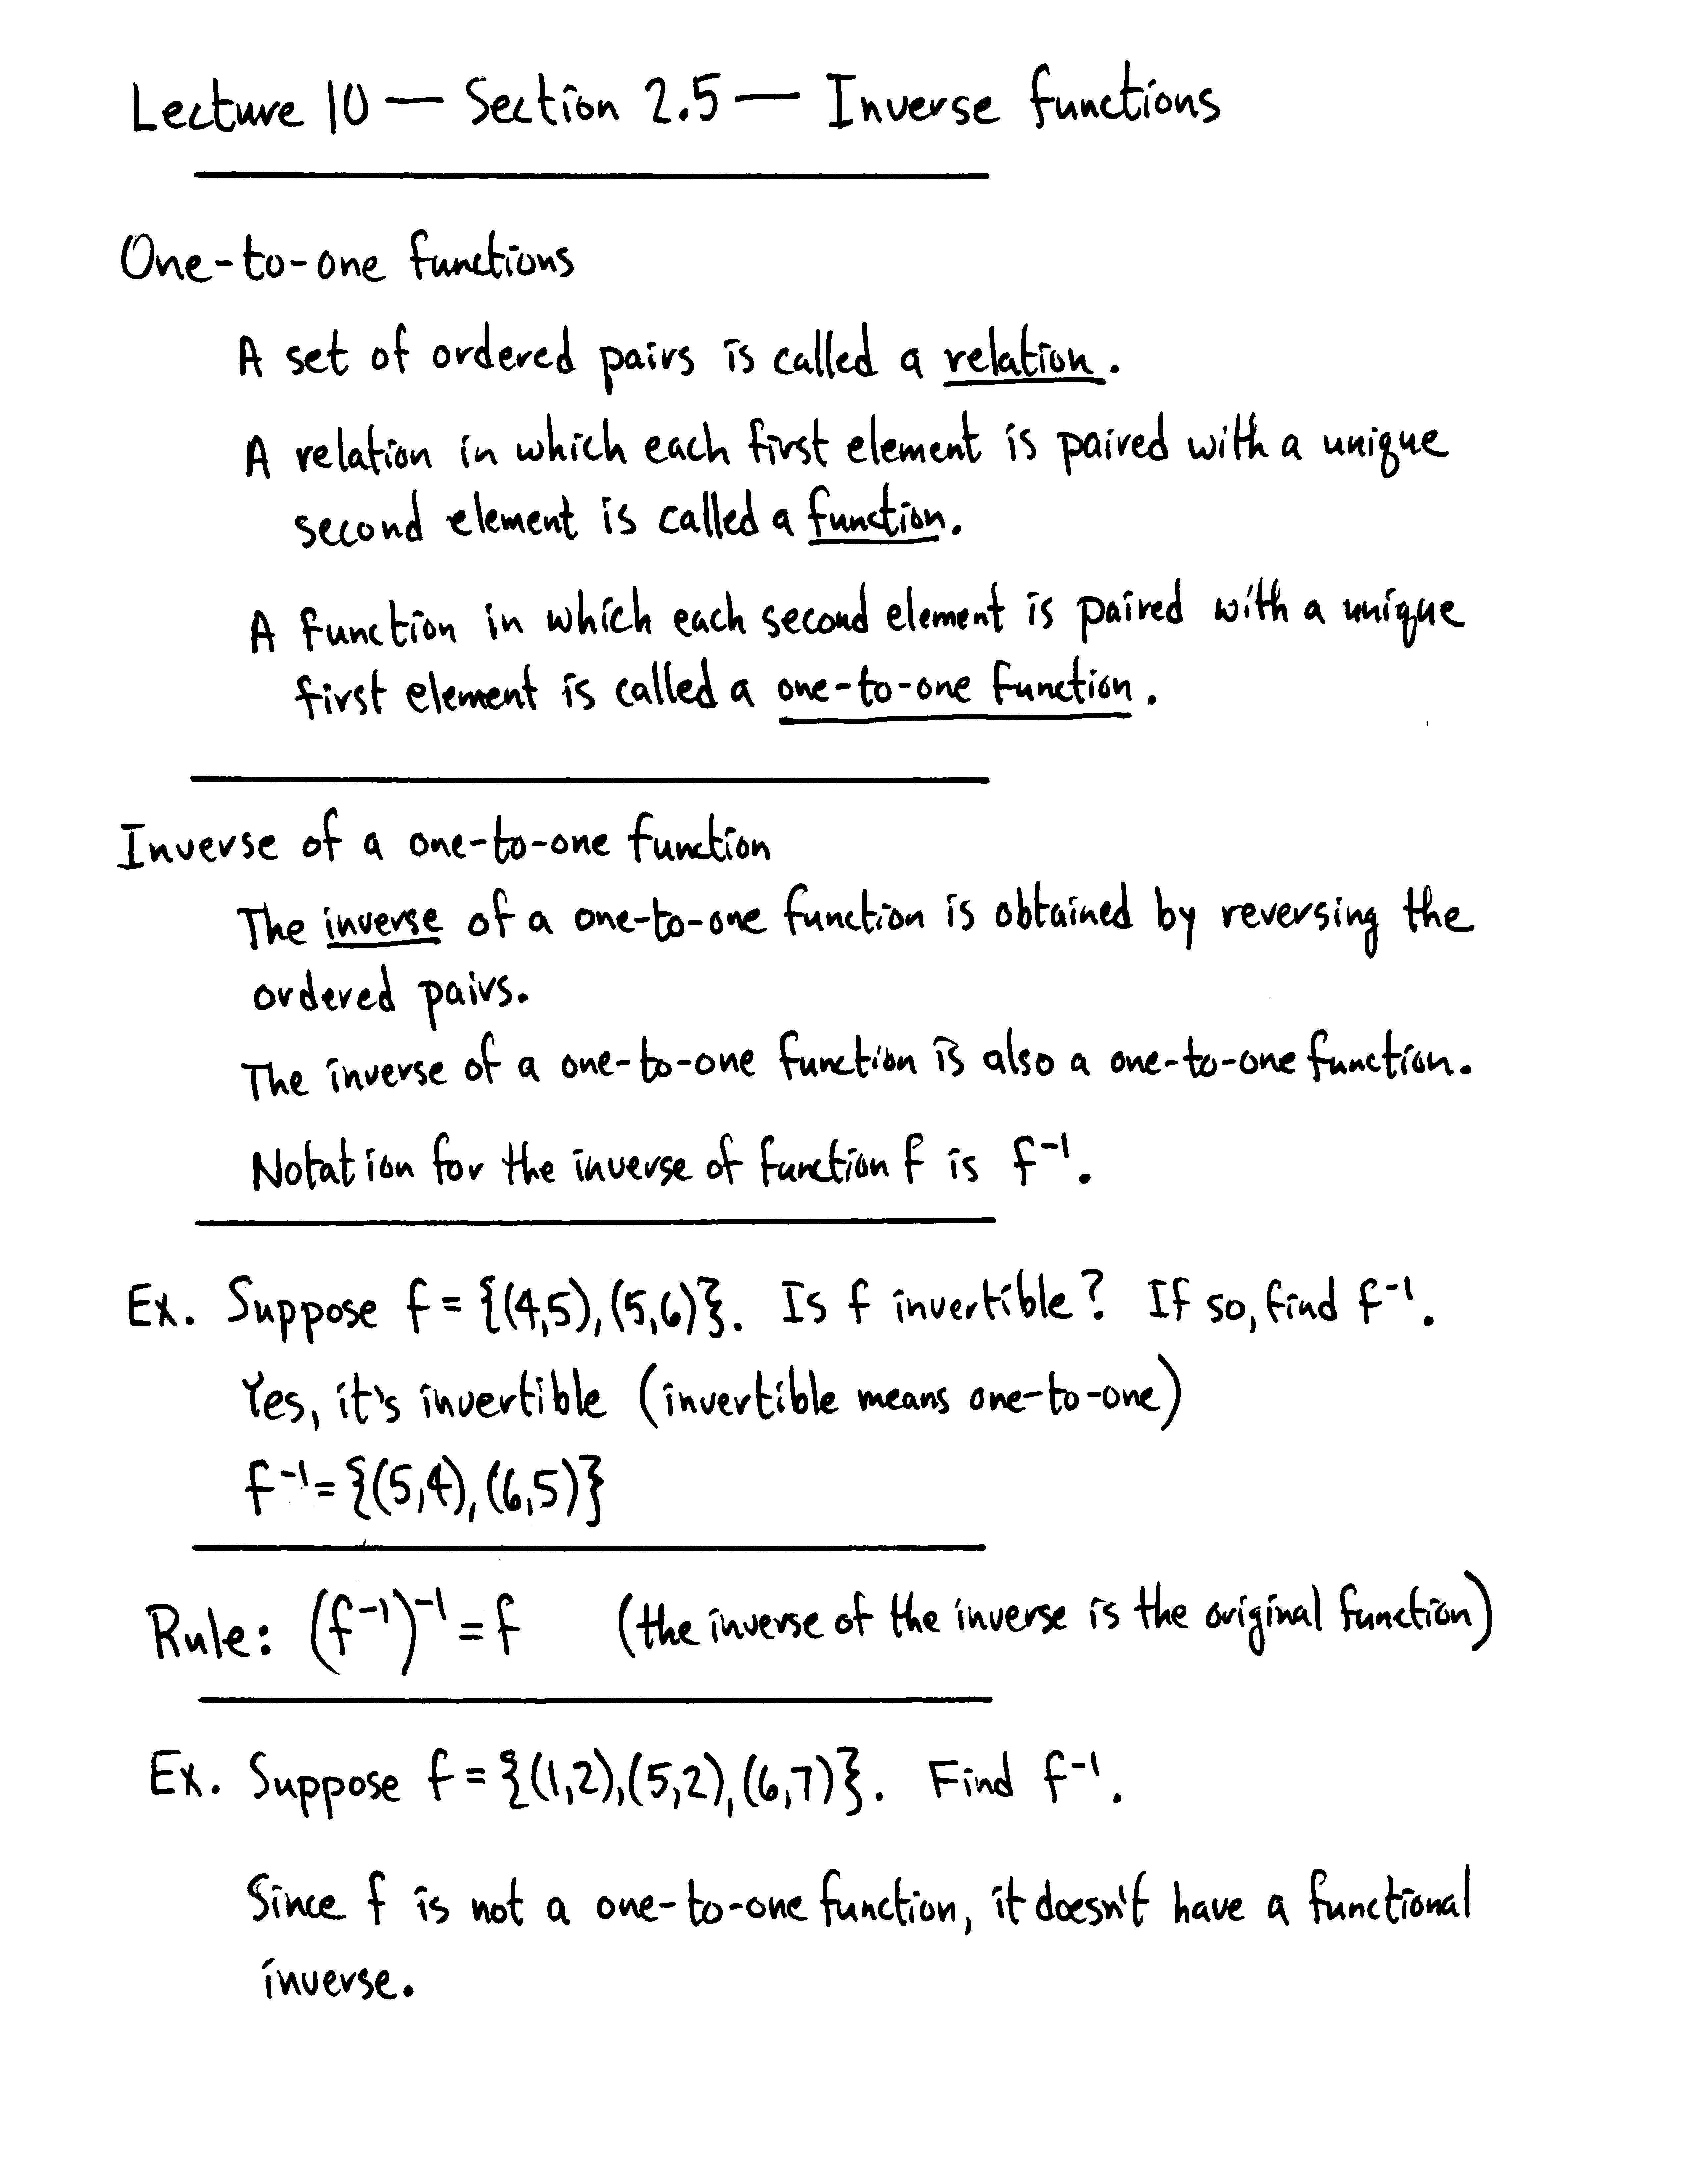 Lecture 10 — Section 2.5 — Inverse functions
One-to-one functions
A set of ordered pairs is called a relation.
A relation in which each first element is paired with a unique
second element is called a function.
A function in which each second element is paired with a unique
first element is called a one-to-one function.
Inverse of a one-to-one function
The inverse of a one-to-one function is obtained by reversing the
ordered pairs.
The inverse of a one-to-one function is also a one-to-one function.
Notation for the inverse of function f is f⁻¹.
Ex. Suppose f = {(4,5),(5,6)}. Is f invertible? If so, find f⁻¹.
Yes, it's invertible (invertible means one-to-one)
f⁻¹ = {(5,4),(6,5)}
Rule: (f⁻¹)⁻¹ = f (the inverse of the inverse is the original function)
Ex. Suppose f = {(1,2),(5,2),(6,7)}. Find f⁻¹.
Since f is not a one-to-one function, it doesn't have a functional
inverse.